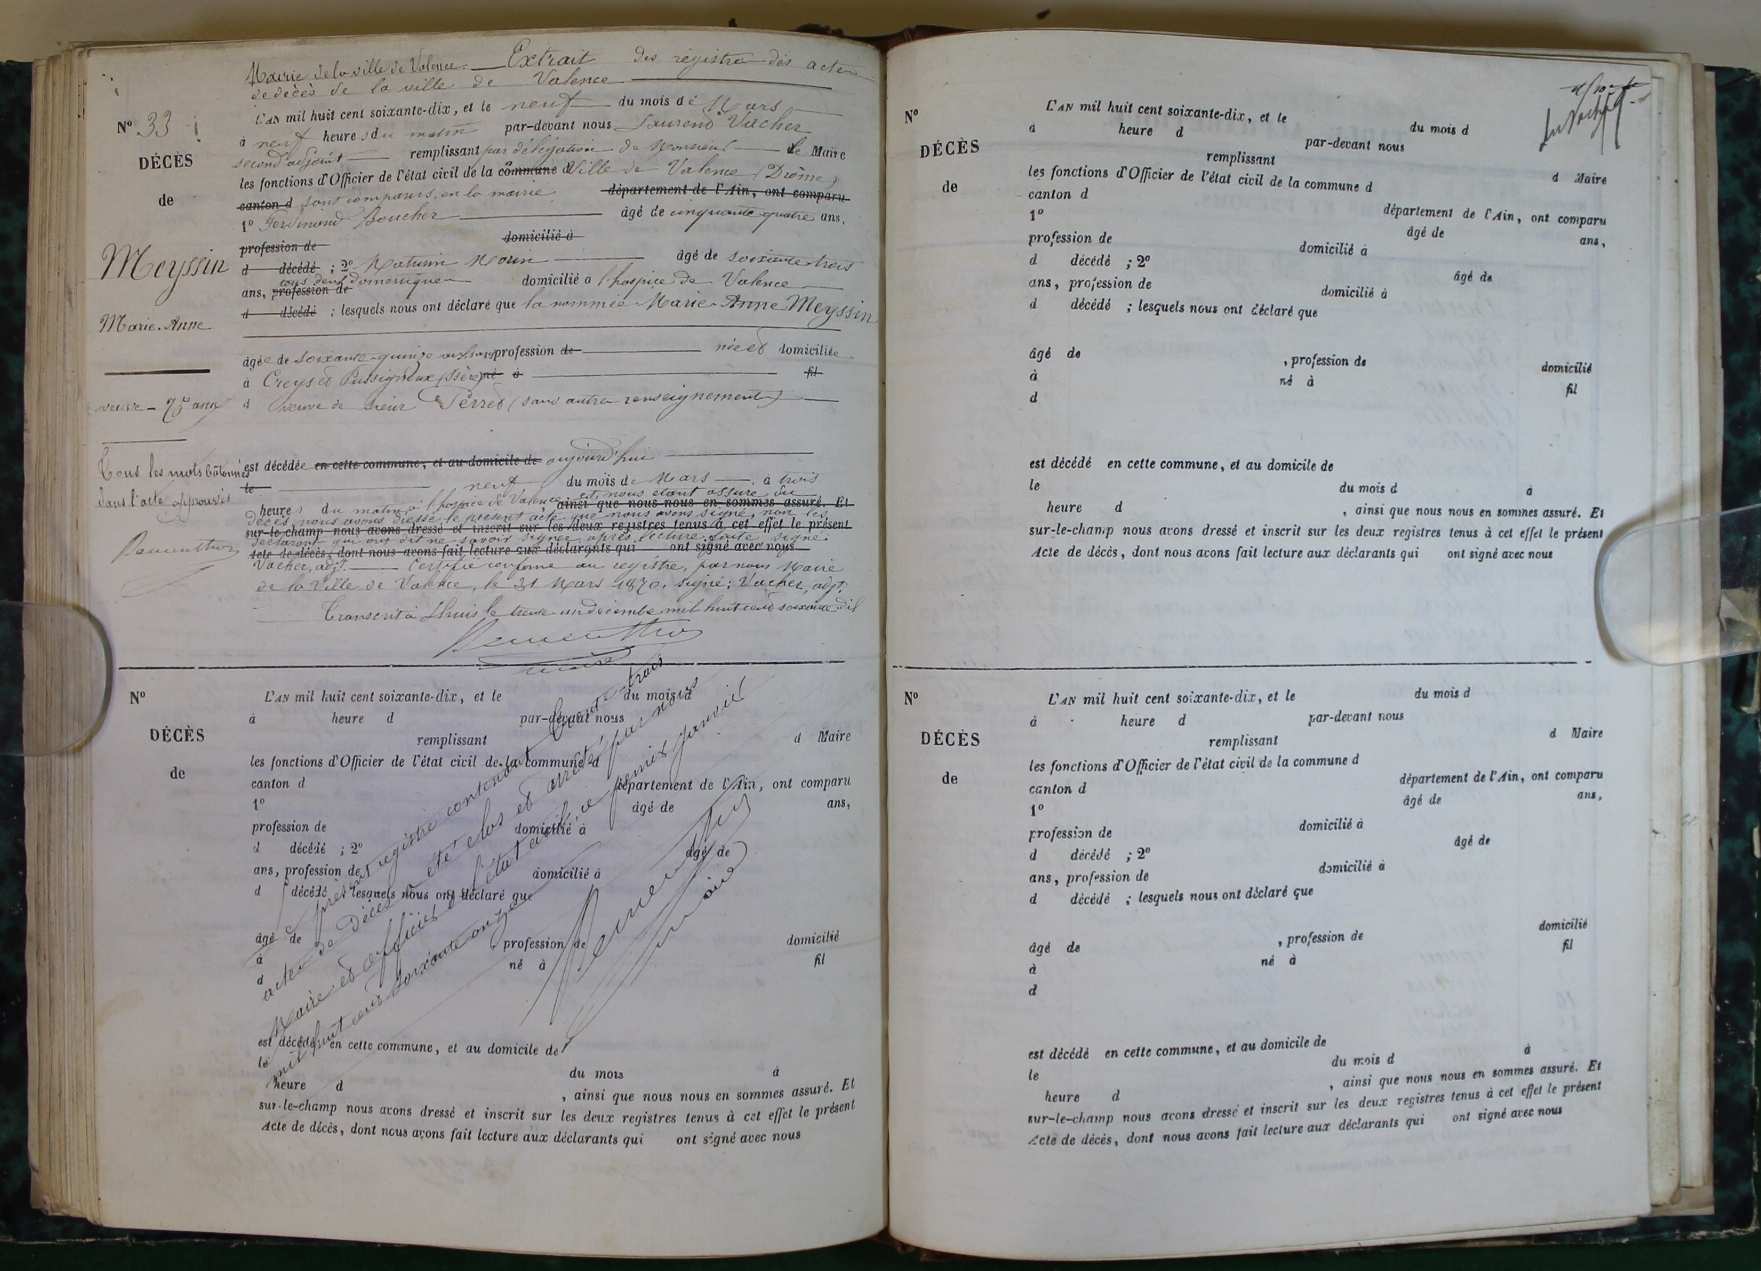 Mairie de la ville de Valence. — Extrait des registres des actes
de décès de la ville de Valence
N° 33
L'AN mil huit cent soixante-dix, et le neuf du mois de Mars
à neuf heures du matin par-devant nous Laurend Vacher
DÉCÈS
second adjoint remplissant par délégation de Monsieur le Maire
les fonctions d'Officier de l'état civil de la commune d Ville de Valence (Drôme)
de
canton d sont comparus, en la mairie, département de l'Ain, ont comparu
1° Ferdinand Boucher âgé de cinquante quatre ans,
profession de domicilié à
Meyssin
d décédé ; 2° Maturin Morin âgé de soixante trois
ans, profession de tous deux domestiques domicilié à l'hospice de Valence
d décédé ; lesquels nous ont déclaré que la nommée Marie-Anne Meyssin
Marie-Anne
âgée de soixante-quinze ans, profession de née et domiciliée
à Creys et Pusignieux (Isère) né à fil
veuve — 75 ans
d veuve de sieur Perret (sans autres renseignements)
Tous les mots bâtonnés
dans l'acte approuvés
est décédée en cette commune, et au domicile de aujourd'hui
le neuf du mois de Mars à trois
heures du matin à l'hospice de Valence et nous étant assuré du
ainsi que nous nous en sommes assuré. Et
décès, nous avons dressé le présent acte que nous avons signé, non les
sur-le-champ nous avons dressé et inscrit sur les deux registres tenus à cet effet le présent
déclarants qui ont dit ne savoir signer, après lecture faite. Signé:
Acte de décès, dont nous avons fait lecture aux déclarants qui ont signé avec nous
Vacher, adjt. Certifié conforme au registre, par nous Maire
de la Ville de Valence, le 31 Mars 1870. Signé: Vacher, adjt.
Transcrit à Lhuis le trente un décembre mil huit cent soixante dix
maire
N°
L'AN mil huit cent soixante-dix, et le du mois d
à heure d par-devant nous
DÉCÈS
remplissant d Maire
les fonctions d'Officier de l'état civil de la commune d
de
canton d département de l'Ain, ont comparu
1° âgé de ans,
profession de domicilié à
d décédé ; 2° âgé de
ans, profession de domicilié à
d décédé ; lesquels nous ont déclaré que
âgé de , profession de domicilié
à né à fil
d
est décédé en cette commune, et au domicile de
le du mois à
heure d , ainsi que nous nous en sommes assuré. Et
sur-le-champ nous avons dressé et inscrit sur les deux registres tenus à cet effet le présent
Acte de décès, dont nous avons fait lecture aux déclarants qui ont signé avec nous
Le présent registre contenant trente trois
actes de décès a été clos et arrêté par nous
Maire et officier de l'état civil, ce premier janvier
mil huit cent soixante onze
maire
N°
L'AN mil huit cent soixante-dix, et le du mois d
à heure d par-devant nous
DÉCÈS
remplissant d Maire
les fonctions d'Officier de l'état civil de la commune d
de
canton d département de l'Ain, ont comparu
1° âgé de ans,
profession de domicilié à
d décédé ; 2° âgé de
ans, profession de domicilié à
d décédé ; lesquels nous ont déclaré que
âgé de , profession de domicilié
à né à fil
d
est décédé en cette commune, et au domicile de
le du mois d à
heure d , ainsi que nous nous en sommes assuré. Et
sur-le-champ nous avons dressé et inscrit sur les deux registres tenus à cet effet le présent
Acte de décès, dont nous avons fait lecture aux déclarants qui ont signé avec nous
N°
L'AN mil huit cent soixante-dix, et le du mois d
à heure d par-devant nous
DÉCÈS
remplissant d Maire
les fonctions d'Officier de l'état civil de la commune d
de
canton d département de l'Ain, ont comparu
1° âgé de ans,
profession de domicilié à
d décédé ; 2° âgé de
ans, profession de domicilié à
d décédé ; lesquels nous ont déclaré que
âgé de , profession de domicilié
à né à fil
d
est décédé en cette commune, et au domicile de
le du mois d à
heure d , ainsi que nous nous en sommes assuré. Et
sur-le-champ nous avons dressé et inscrit sur les deux registres tenus à cet effet le présent
Acte de décès, dont nous avons fait lecture aux déclarants qui ont signé avec nous